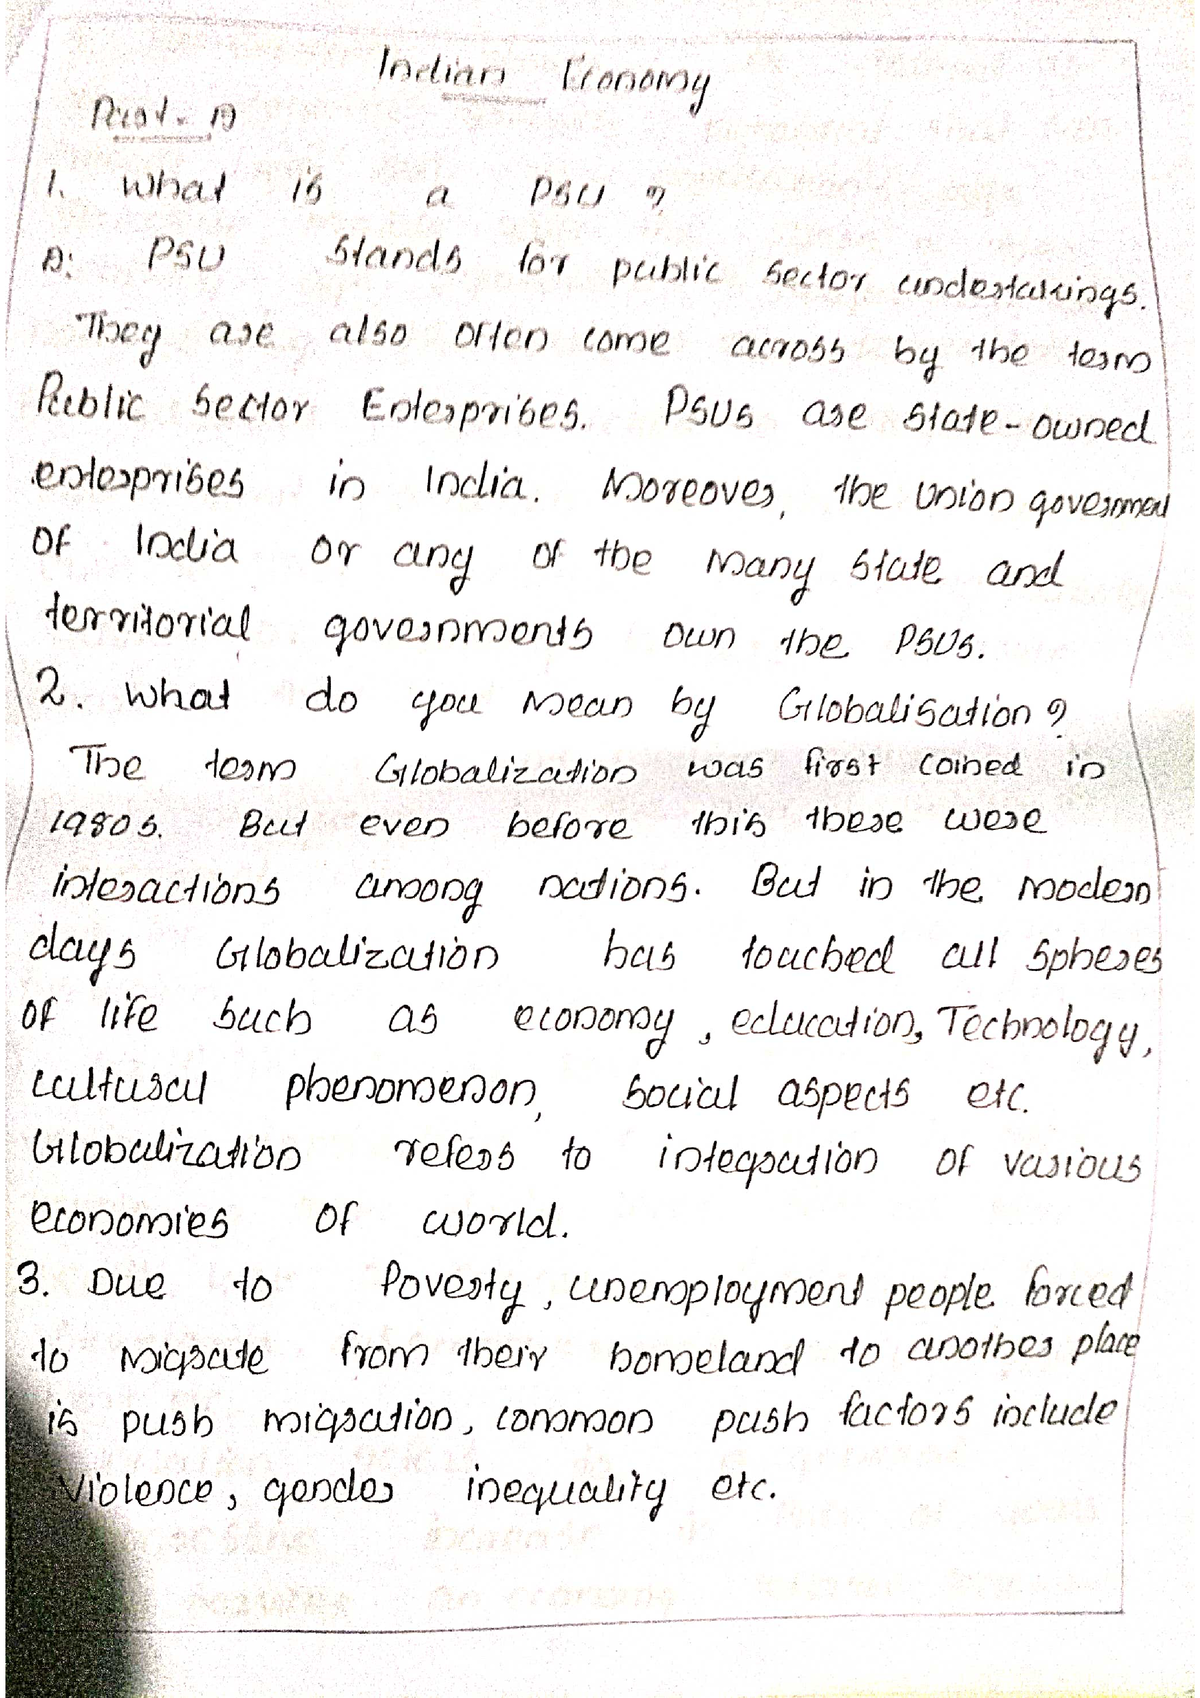 Indian Economy
Part - A
1. What is a PSU ?
A: PSU stands for public sector undertakings.
They are also often come across by the term
Public Sector Enterprises. PSUs are state-owned
enterprises in India. Moreover, the union government
of India or any of the many state and
territorial governments own the PSUs.
2. What do you mean by Globalisation ?
The term Globalization was first coined in
1980s. But even before this there were
interactions among nations. But in the modern
days Globalization has touched all spheres
of life such as economy, education, Technology,
cultural phenomenon, social aspects etc.
Globalization refers to integration of various
economies of world.
3. Due to Poverty, unemployment people forced
to migrate from their homeland to another place
is push migration, common push factors include
violence, gender inequality etc.